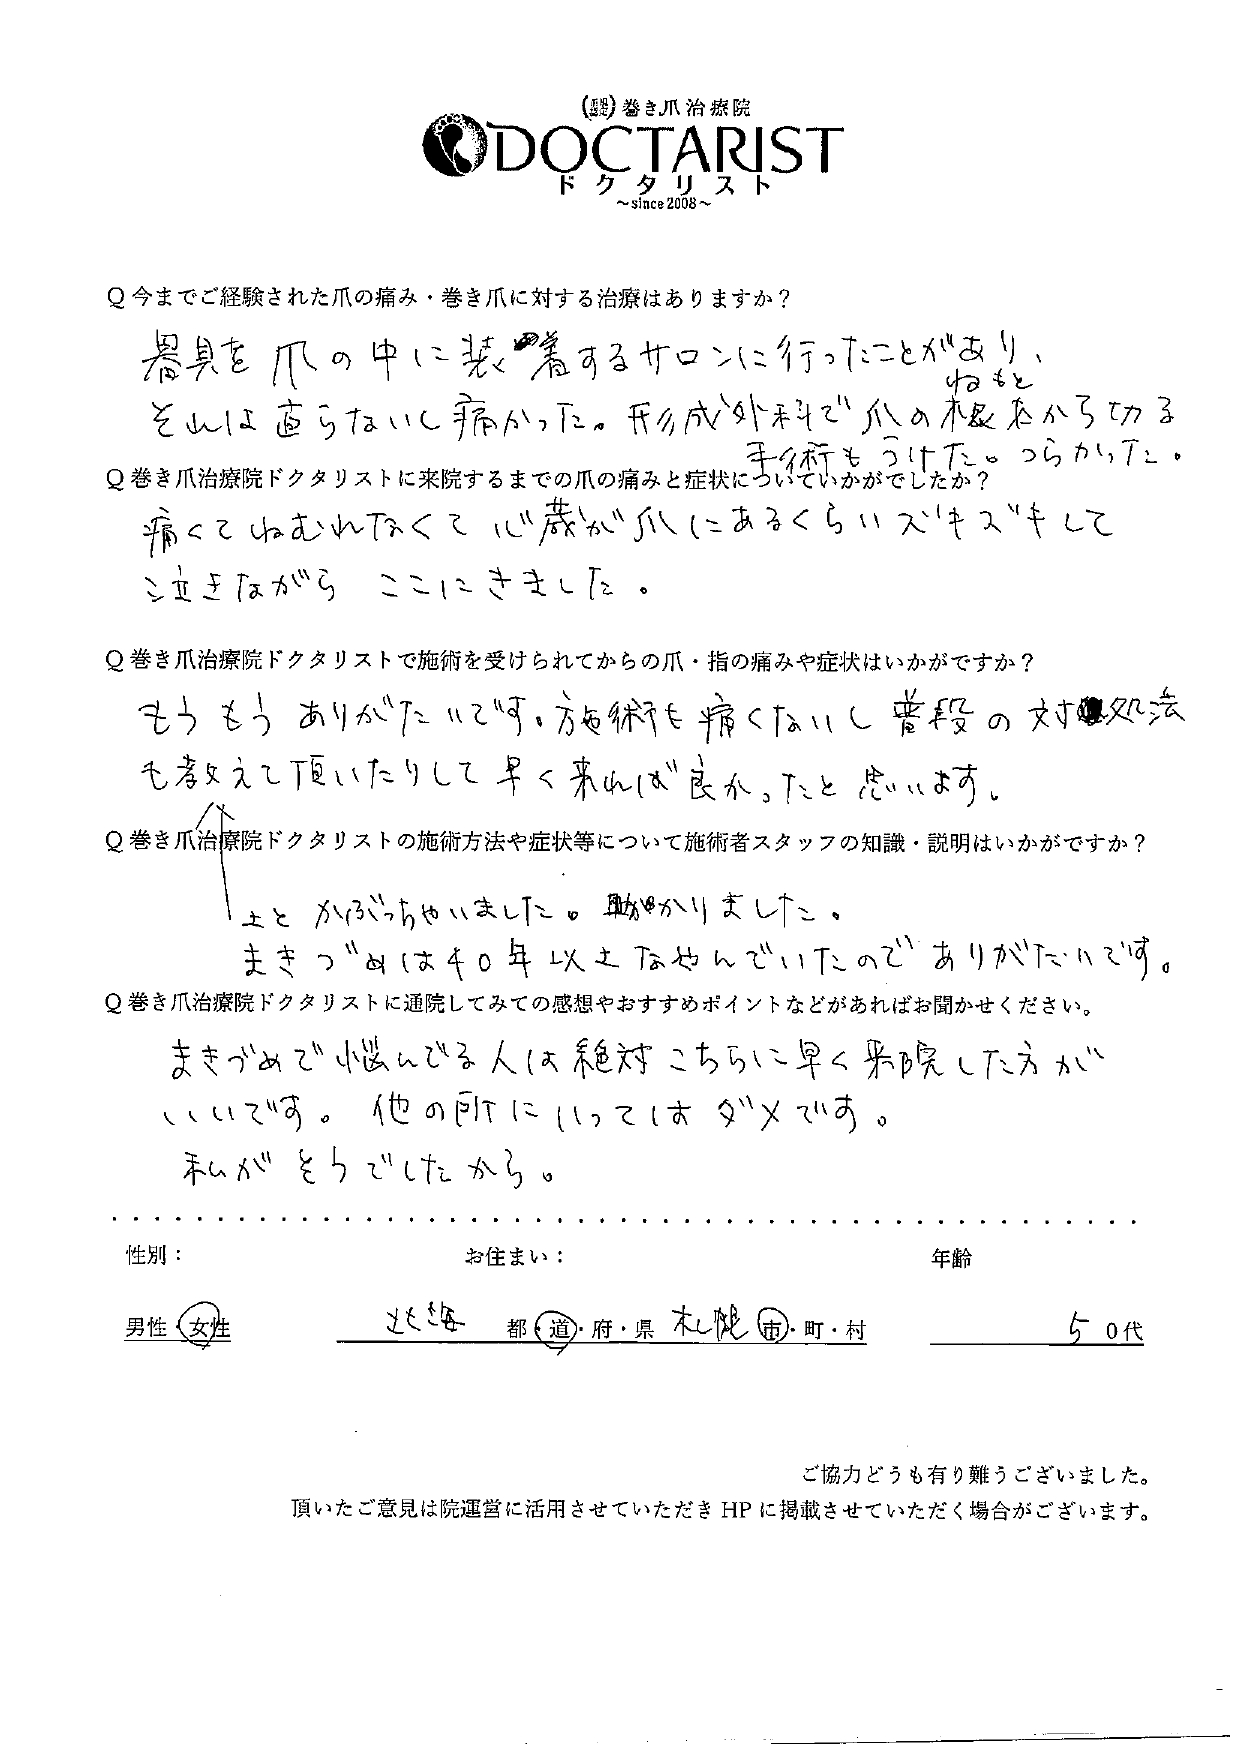 巻き爪治療院
DOCTARIST
ドクタリスト
～since2008～
Q今までご経験された爪の痛み・巻き爪に対する治療はありますか？
器具を爪の中に装着するサロンに行ったことがあり、
ねもと
それは直らないし痛かった。形成外科で爪の根本から切る
手術もうけた。つらかった。
Q巻き爪治療院ドクタリストに来院するまでの爪の痛みと症状についていかがでしたか？
痛くてねむれなくて心蔵が爪にあるくらいズキズキして
泣きながら ここにきました。
Q巻き爪治療院ドクタリストで施術を受けられてからの爪・指の痛みや症状はいかがですか？
もうもうありがたいです。施術も痛くないし普段の対処法
も教えて頂いたりして早く来れば良かったと思います。
Q巻き爪治療院ドクタリストの施術方法や症状等について施術者スタッフの知識・説明はいかがですか？
上とかぶっちゃいました。助かりました。
まきづめは40年以上なやんでいたのでありがたいです。
Q巻き爪治療院ドクタリストに通院してみての感想やおすすめポイントなどがあればお聞かせください。
まきづめで悩んでる人は絶対こちらに早く来院した方が
いいです。他の所にいってはダメです。
私がそうでしたから。
性別： お住まい： 年齢
男性・女性 北海 都・道・府・県 札幌 市・町・村 50代
ご協力どうも有り難うございました。
頂いたご意見は院運営に活用させていただきHPに掲載させていただく場合がございます。